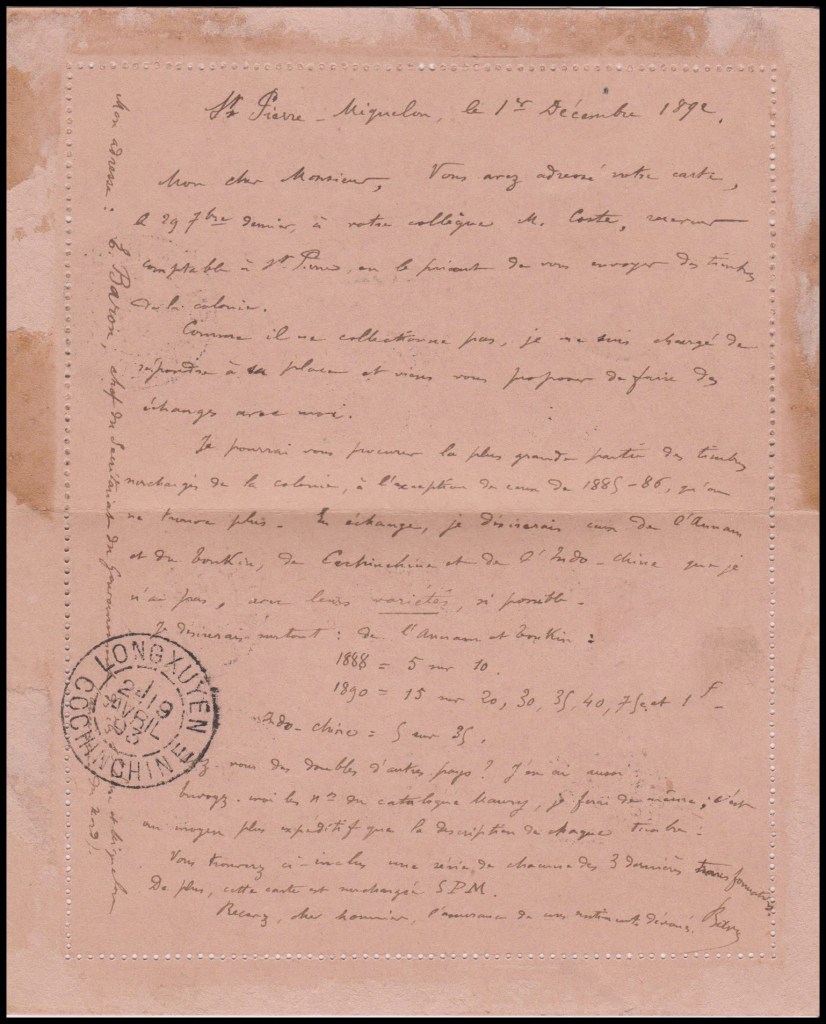 St Pierre - Miquelon, le 1er Décembre 1892.
Mon cher Monsieur, Vous avez adressé votre carte,
le 29 7bre dernier, à votre collègue M. Coste, receveur
comptable à St Pierre, en le priant de vous envoyer des timbres
de la colonie.
Comme il ne collectionne pas, je me suis chargé de
répondre à sa place et viens vous proposer de faire des
échanges avec moi.
Je pourrai vous procurer la plus grande partie des timbres
surchargés de la colonie, à l'exception de ceux de 1885-86, qu'on
ne trouve plus. En échange, je désirerais ceux de l'Annam
et du Tonkin, de Cochinchine et de l'Indo-chine que je
n'ai pas, avec leurs variétés, si possible.
Je désirerais surtout : de l'Annam et Tonkin :
1888 = 5 sur 10.
1890 = 15 sur 20, 30, 35, 40, 75c. et 1f -
Indo-chine = 5 sur 35.
-vous des doubles d'autres pays ? J'en ai aussi.
Envoyez-moi les nos du catalogue Maury, je ferai de même ; c'est
un moyen plus expéditif que la description de chaque timbre.
Vous trouverez ci-inclus une série de chacune des 3 dernières transformations.
De plus, cette carte est surchargée S.P.M.
Recevez, cher Monsieur, l'assurance de mes sentiments dévoués. Baron
Mon adresse : E. Baron, chef du Secrétariat du Gouvernement et Miquelon
LONGXUYEN
2E/19
AVRIL
93
COCHINCHINE